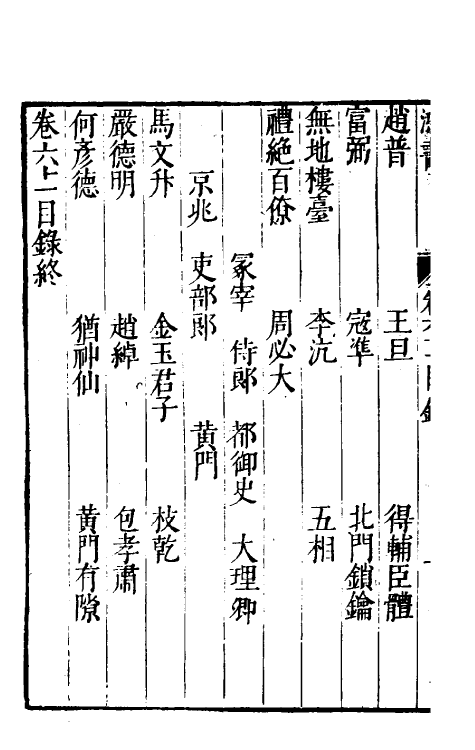 趙普　王旦　得輔臣體
富弼　寇準　北門鎖鑰
無地樓臺　李沆　五相
禮絶百僚　周必大
冢宰　侍郎　都御史　大理卿
京兆　吏部郎　黃門
馬文升　金玉君子　枝乾
嚴德明　趙綽　包孝肅
何彥德　猶神仙　黃門有隙
卷六十一目錄終